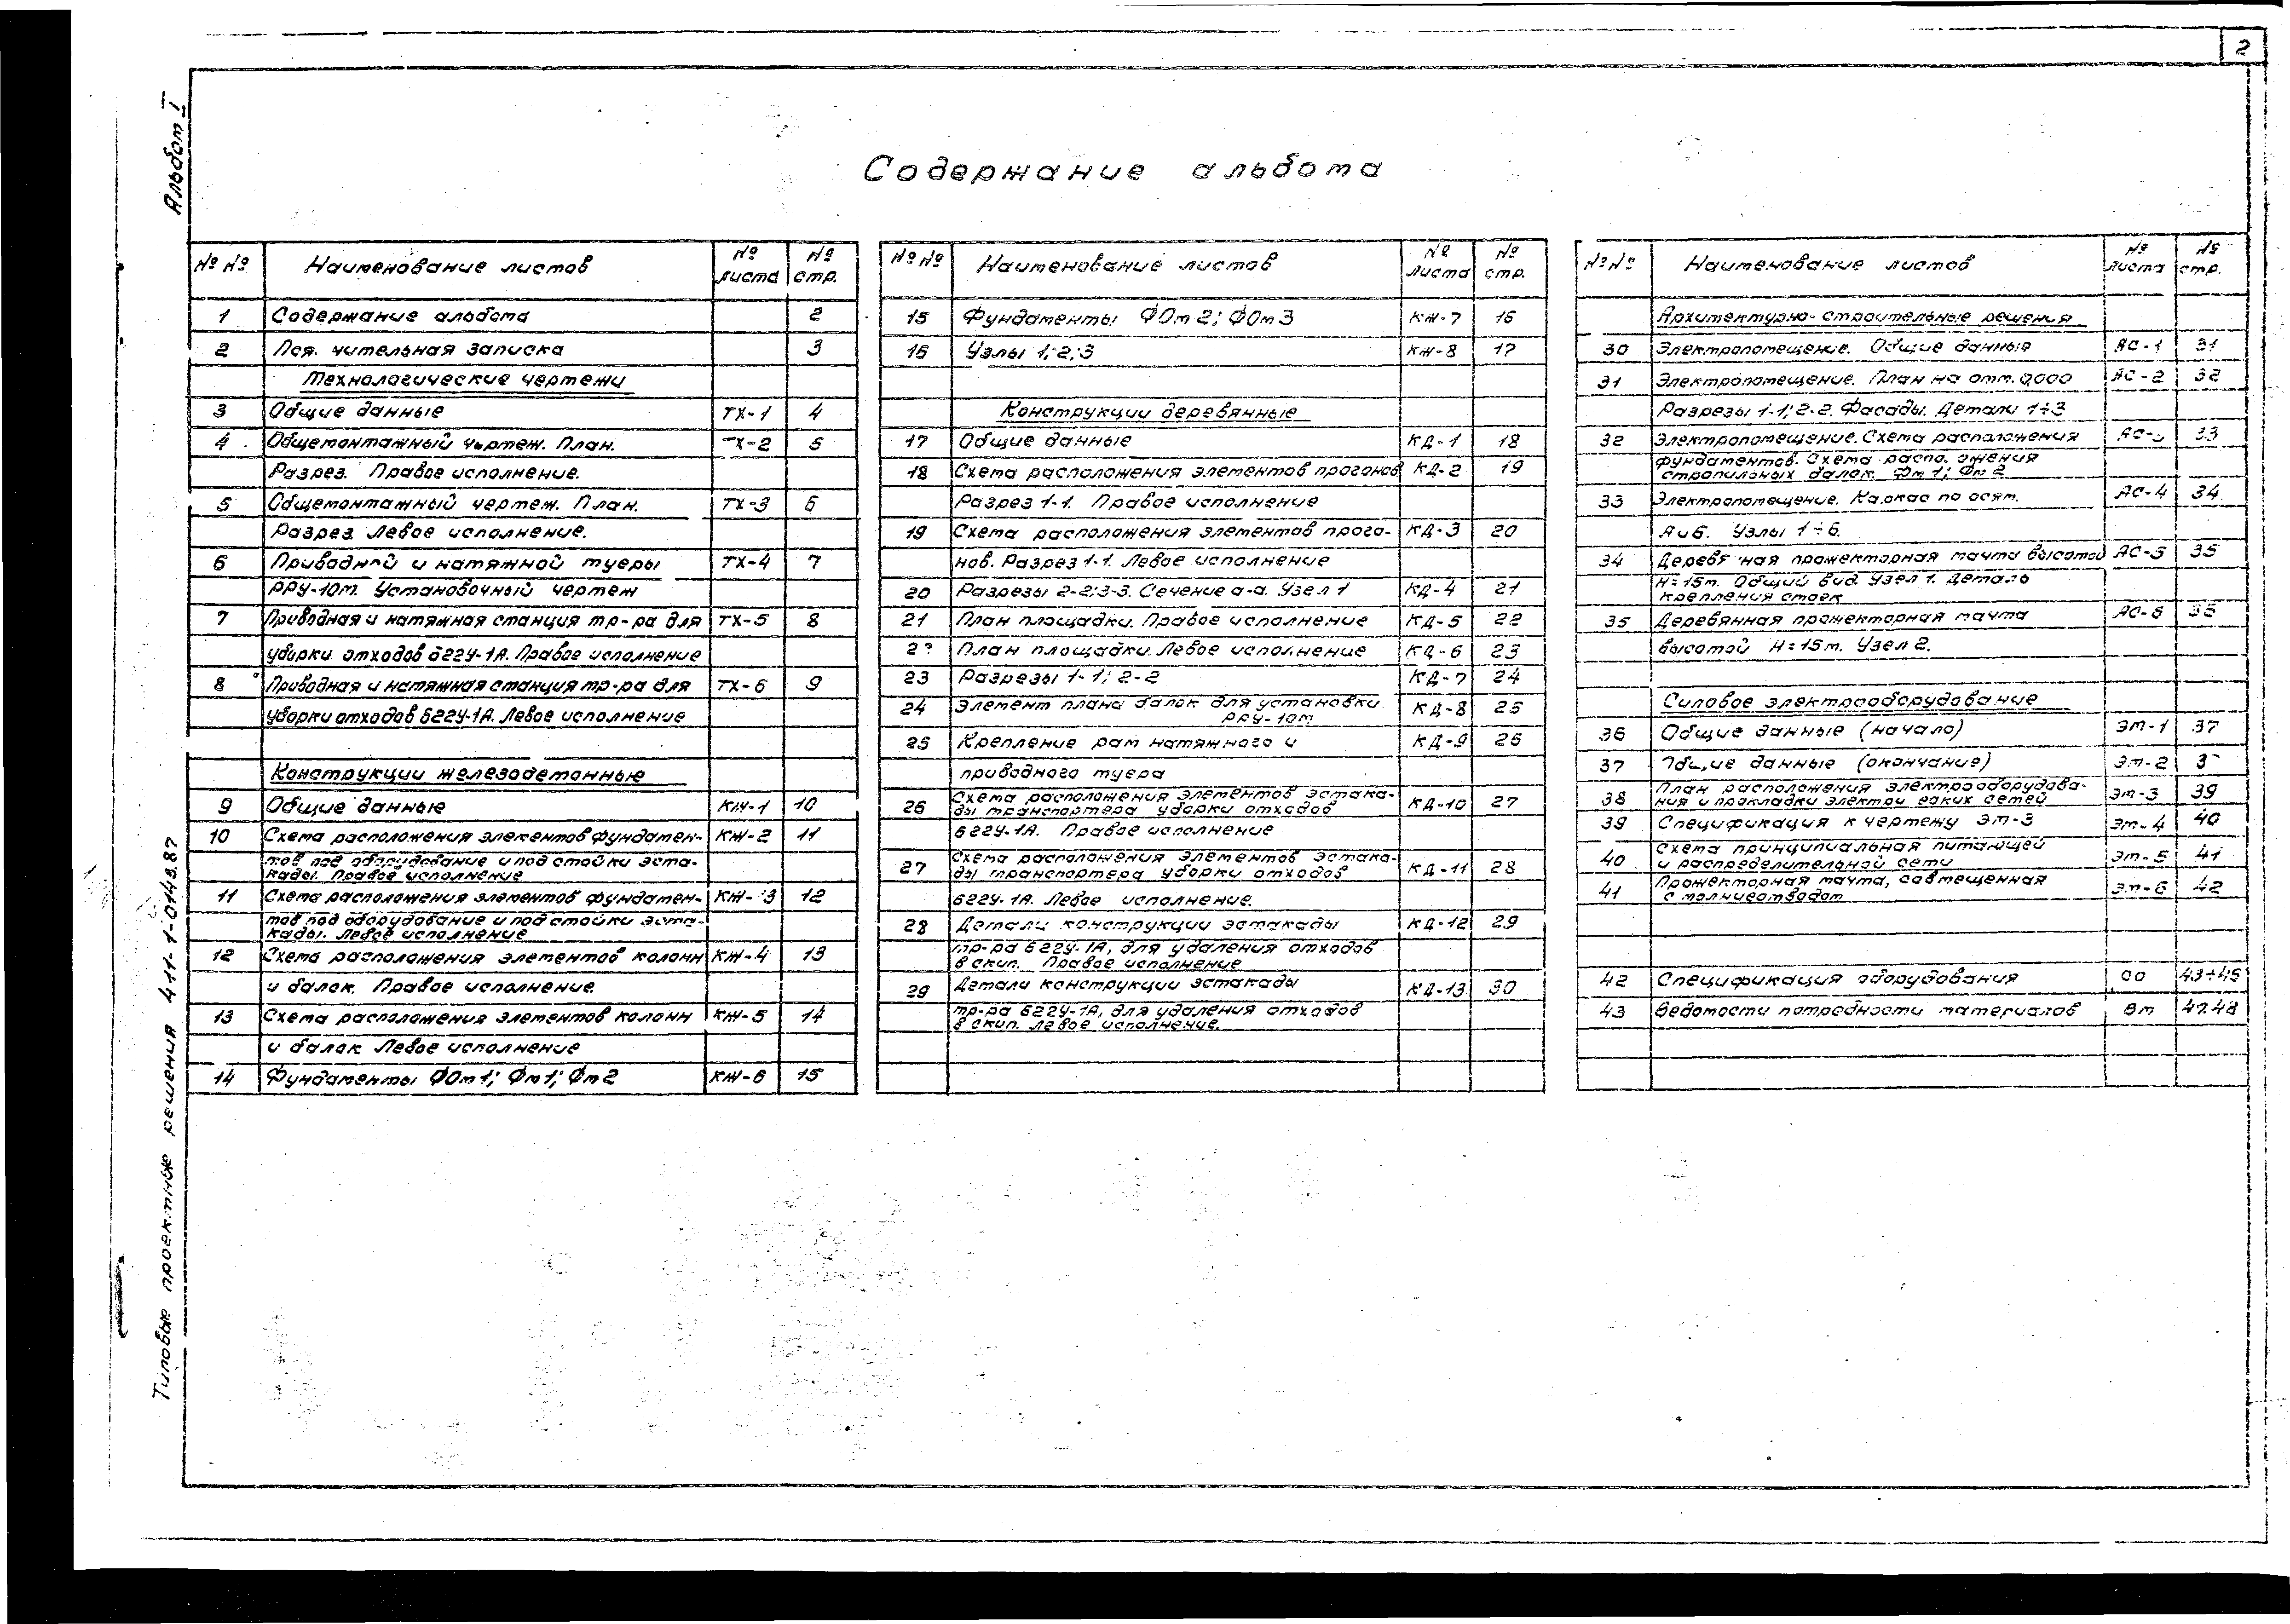 2
Альбом I
Типовые проектные решения 411-1-0143.87
Содержание альбома
№№ Наименование листов № листа № стр.
1 Содержание альбома 2
2 записка 3
Технологические чертежи
3 Общие данные ТХ-1 4
4 Общемонтажный чертеж. План. ТХ-2 5
Разрез. Правое исполнение.
5 Общемонтажный чертеж. План. ТХ-3 6
Разрез Левое исполнение.
6 Приводной и натяжной туеры ТХ-4 7
РРУ-10м. Установочный чертеж
7 Приводная и натяжная станция тр-ра для ТХ-5 8
уборки отходов Б22У-1А. Правое исполнение
8 Приводная и натяжная станция тр-ра для ТХ-6 9
уборки отходов Б22У-1А. Левое исполнение
Конструкции железобетонные
9 Общие данные КЖ-1 10
10 Схема расположения элементов фундамен- КЖ-2 11
тов под оборудование и под стойки эста-
кады. Правое исполнение
11 Схема расположения элементов фундамен- КЖ-3 12
тов под оборудование и под стойки эста-
кады. Левое исполнение
12 Схема расположения элементов колонн КЖ-4 13
и балок. Правое исполнение.
13 Схема расположения элементов колонн КЖ-5 14
и балок Левое исполнение
14 Фундаменты ФОм1; Фм1; Фм2 КЖ-6 15
№№ Наименование листов № листа № стр.
15 Фундаменты ФОм2; ФОм3 КЖ-7 16
16 Узлы 1; 2; 3 КЖ-8 17
Конструкции деревянные
17 Общие данные КД-1 18
18 Схема расположения элементов прогонов КД-2 19
Разрез 1-1. Правое исполнение
19 Схема расположения элементов прого- КД-3 20
нов. Разрез 1-1. Левое исполнение
20 Разрезы 2-2; 3-3. Сечение а-а. Узел 1 КД-4 21
21 План площадки. Правое исполнение КД-5 22
План площадки. Левое исполнение КД-6 23
23 Разрезы 1-1; 2-2 КД-7 24
24 Элемент плана балок для установки КД-8 25
РРУ-10м
25 Крепление рам натяжного и КД-9 26
приводного туера
26 Схема расположения элементов эстака- КД-10 27
ды транспортера уборки отходов
Б22У-1А. Правое исполнение
27 Схема расположения элементов эстака- КД-11 28
ды транспортера уборки отходов
Б22У-1А. Левое исполнение.
28 Детали конструкции эстакады КД-12 29
тр-ра Б22У-1А, для удаления отходов
в скип. Правое исполнение
29 Детали конструкции эстакады КД-13 30
тр-ра Б22У-1А, для удаления отходов
в скип. Левое исполнение.
№№ Наименование листов № листа № стр.
Архитектурно-строительные решения
30 Электропомещение. Общие данные АС-1 31
31 Электропомещение. План на отм. 0,000 АС-2 32
Разрезы 1-1; 2-2. Фасады. Детали 1÷3
32 Электропомещение. Схема расположения 33
фундаментов. Схема
стропильных балок. Фм1; Фм2
33 Электропомещение. Каркас по осям. АС-4 34
А и Б. Узлы 1÷6.
34 прожекторная мачта высотой АС-5 35
Н=15м. Общий вид. Узел 1. Деталь
крепления стоек
35 Деревянная прожекторная мачта АС-6 36
высотой Н=15м. Узел 2.
Силовое электрооборудование
36 Общие данные (начало) ЭМ-1 37
37 данные (окончание) ЭМ-2
38 План расположения электрооборудова- ЭМ-3 39
ния и прокладки сетей
39 Спецификация к чертежу ЭМ-3 ЭМ-4 40
40 Схема принципиальная питающей ЭМ-5 41
и распределительной сети
41 Прожекторная мачта, совмещенная ЭМ-6 42
с молниеотводом
42 Спецификация оборудования СО 43÷45
43 Ведомости потребности материалов ВМ 47.48